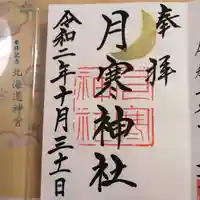 奉拝
月寒神社
令和二年十月三十一日
月寒神社
北海道神宮